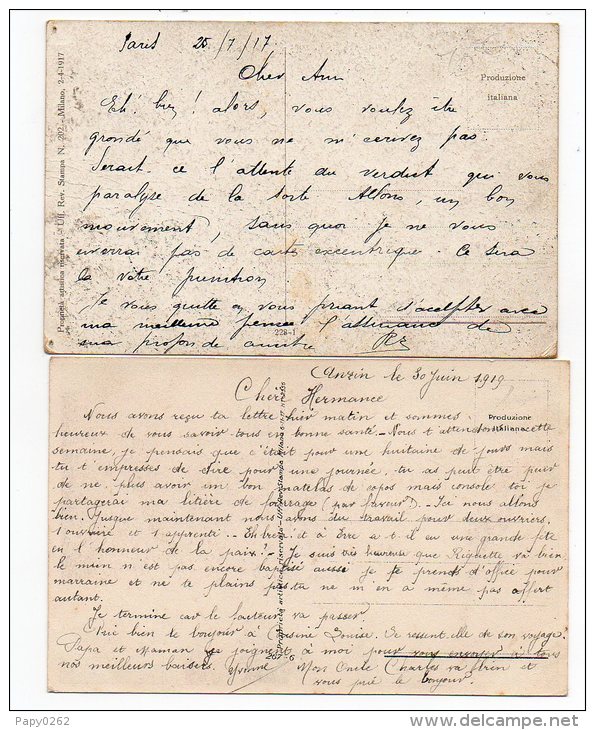 Paris 25/7/17
Cher Ami
Produzione
italiana
Eh! bien! alors, vous voulez être
grondé que vous ne m'ecrivez pas.
Serait-ce l'attente du verdict qui vous
paralyse de la sorte Allons, un bon
mouvement, sans quoi je ne vous
enverrai pas de carte excentrique. Ce sera
là votre punition
Je vous quitte en vous priant d'accepter avec
ma meilleure pensée l'assurance de
ma profonde amitié
228-1
Proprietà artistica riservata - Uff. Rev. Stampa N. 202 - Milano, 2-4-1917
Anzin le 30 Juin 1919
Chère Hermance
Produzione
italiana
Nous avons reçu ta lettre hier matin et sommes
heureux de vous savoir tous en bonne santé - Nous t'attendons cette
semaine, je pensais que c'était pour une huitaine de jours mais
tu t'empresses de dire pour une journée, tu as peut être peur
de ne plus avoir un bon matelas de copos mais console toi je
partagerai ma litière de fourrage (par faveur). - Ici nous allons
bien. Jusque maintenant nous avons du travail pour deux ouvriers.
1 ouvrière et 1 apprenti
a t il eu une grande fête
en l'honneur de la paix? - Je suis très heureuse que Riquette va bien
le mien n'est pas encore baptisé aussi je te prends d'office pour
marraine et ne te plains pas tu ne m'en a même pas offert
autant.
Je termine car le facteur va passer
bien le bonjour à Cousine Louise. Se ressent elle de son voyage
Papa et Maman se joignent à moi pour vous envoyer à tous
nos meilleurs baisers. Yvonne
Mon Oncle Charles va bien et
vous prie le bonjour.
267-6
Papy0262
www.delcampe.net